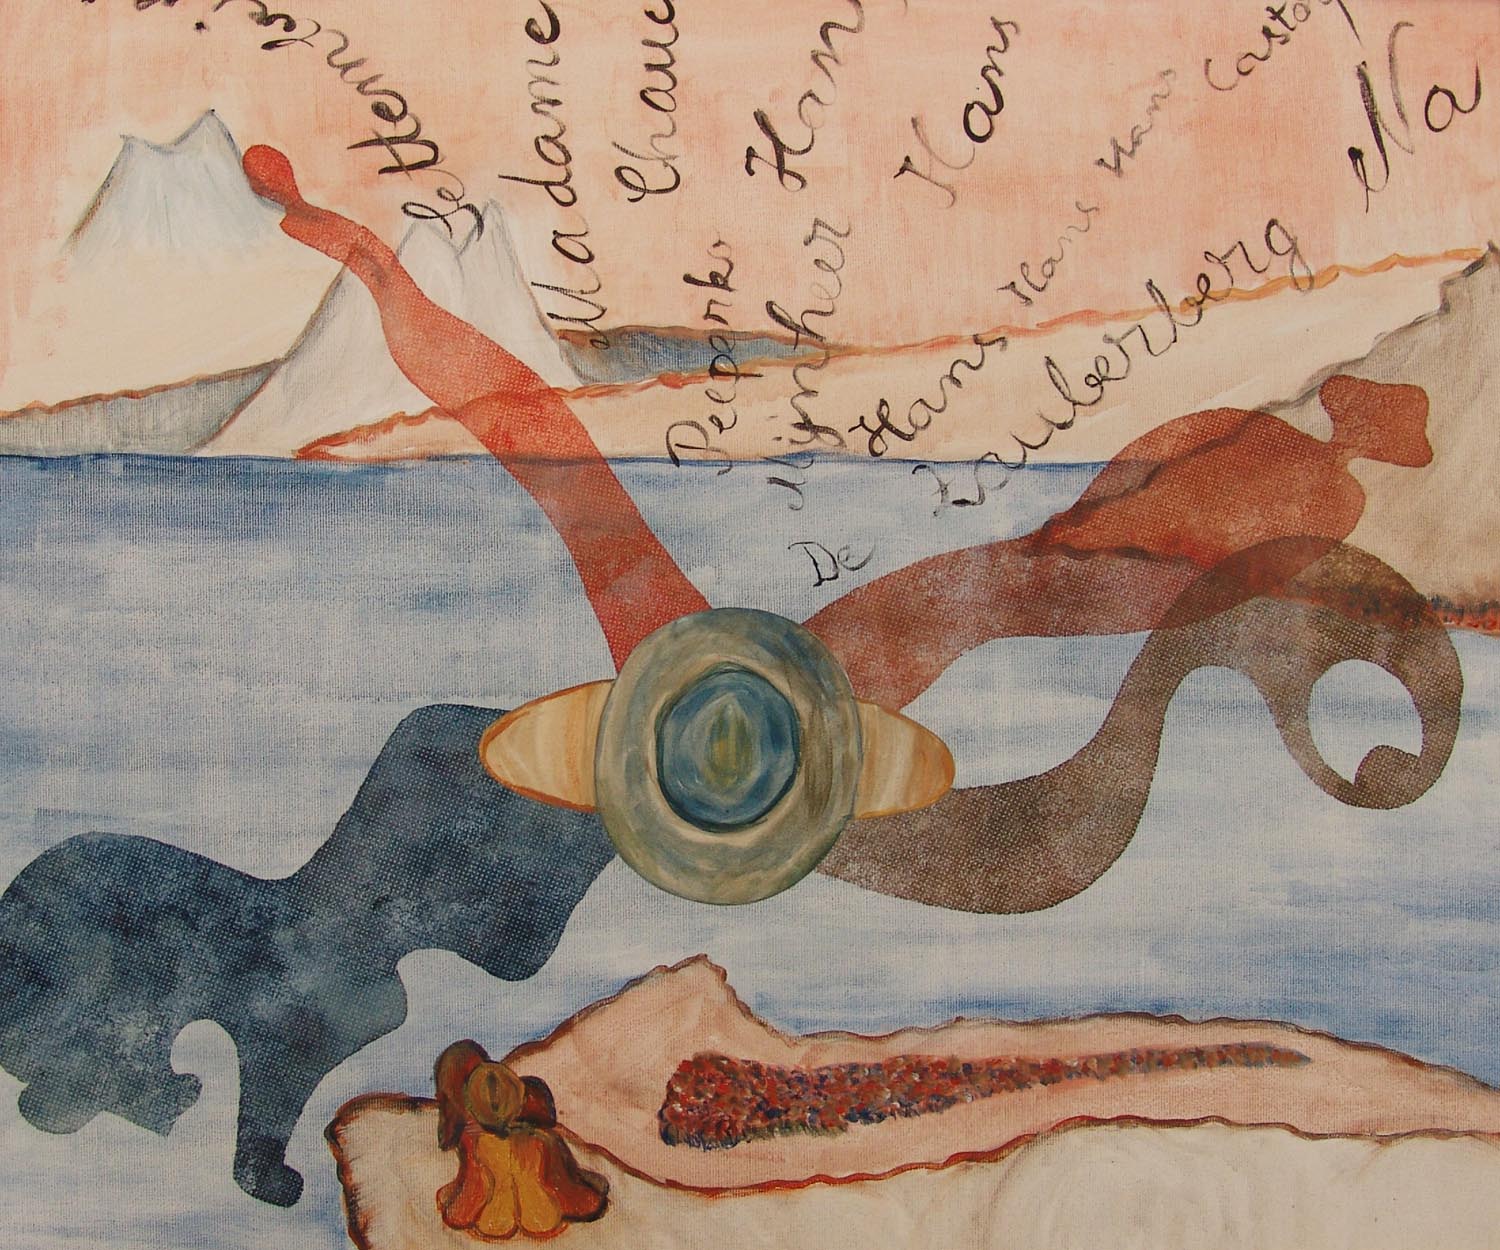 Settem
Madame
Chauc
Peeperko
Mijnheer Han
Hans
Hans Hans Hans Hans Castor
De Zauberberg
Na